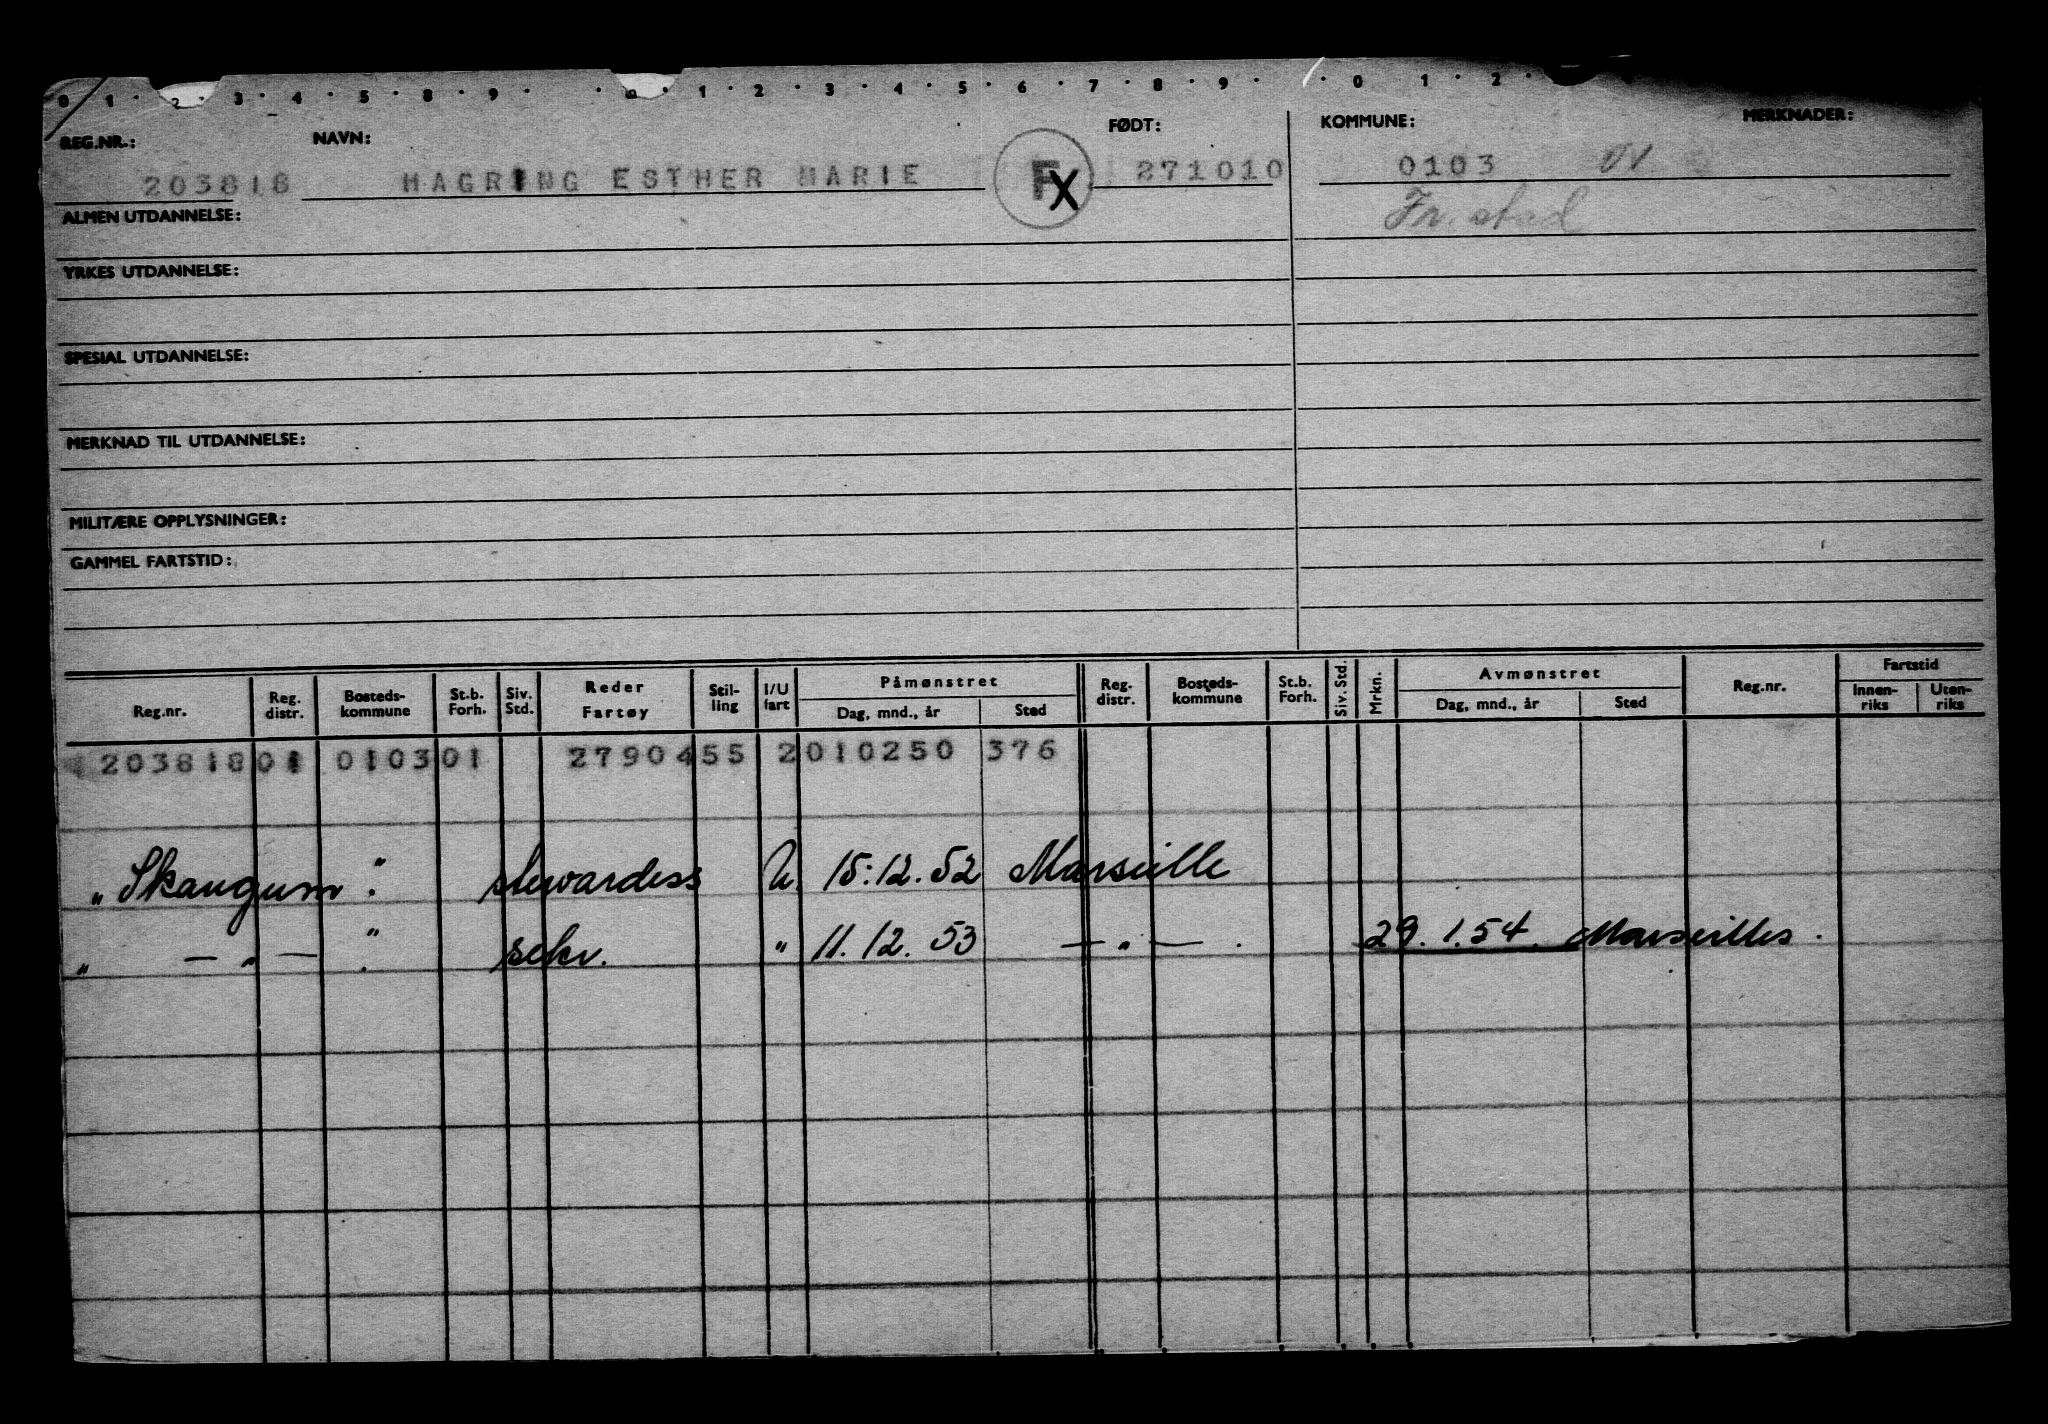 0 1 2 3 4 5 8 9 0 1 2 3 4 5 6 7 8 9 0 1 2
REG.NR.: NAVN: FØDT: KOMMUNE: MERKNADER:
203818 HAGRING ESTHER MARIE F X 271010 0103 01
Fr.stad
ALMEN UTDANNELSE:
YRKES UTDANNELSE:
SPESIAL UTDANNELSE:
MERKNAD TIL UTDANNELSE:
MILITÆRE OPPLYSNINGER:
GAMMEL FARTSTID:
Reg.nr. Reg. distr. Bosteds-kommune St.b. Forh. Siv. Std. Reder Fartøy Stil-ling I/U fart Påmønstret Dag, mnd., år Sted Reg. distr. Bosteds-kommune St.b. Forh. Siv. Std. Mrkn. Avmønstret Dag, mnd., år Sted Reg.nr. Fartstid Innen-riks Uten-riks
203818 01 0103 01 2790455 2 010250 376
"Skaugum". stewardess U 15.12.52 Marseille
" — " — ". sekr. " 11.12.53 — " — . 29.1.54. Marseilles.